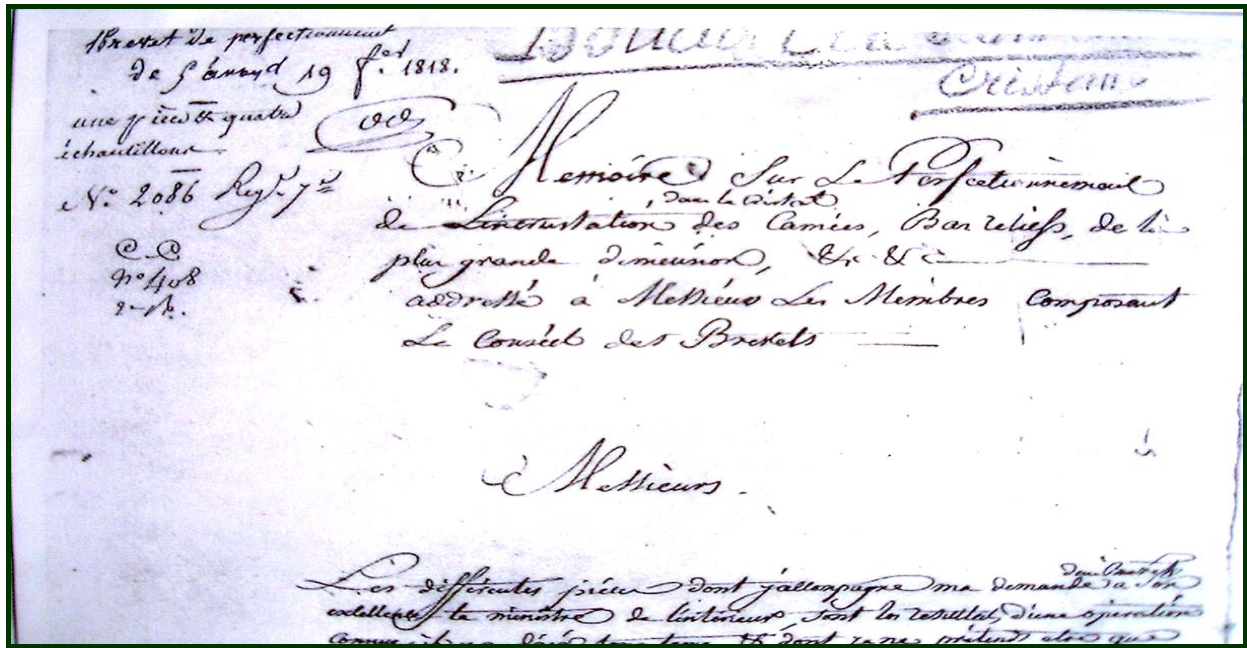 Brevet de perfectionnement
de 5 ans, du 19 fer. 1818.
une pièce & quatre
échantillons.
N.º 2086 Reg.e 7
nº 408
Cristaux
Memoire Sur Le Perfectionnement
dans le cristal
de Lincrustation des Camées, Bas reliefs, de la
plus grande dimension, &c &c
addressé à Messieurs Les Membres Composant
Le Conseil des Brevets
Messieurs.
Les différentes pièces dont j'accompagne ma demande à Son
excellence le ministre de l'intérieur, sont les resultats d'une opération
connue dont je ne prétends être que